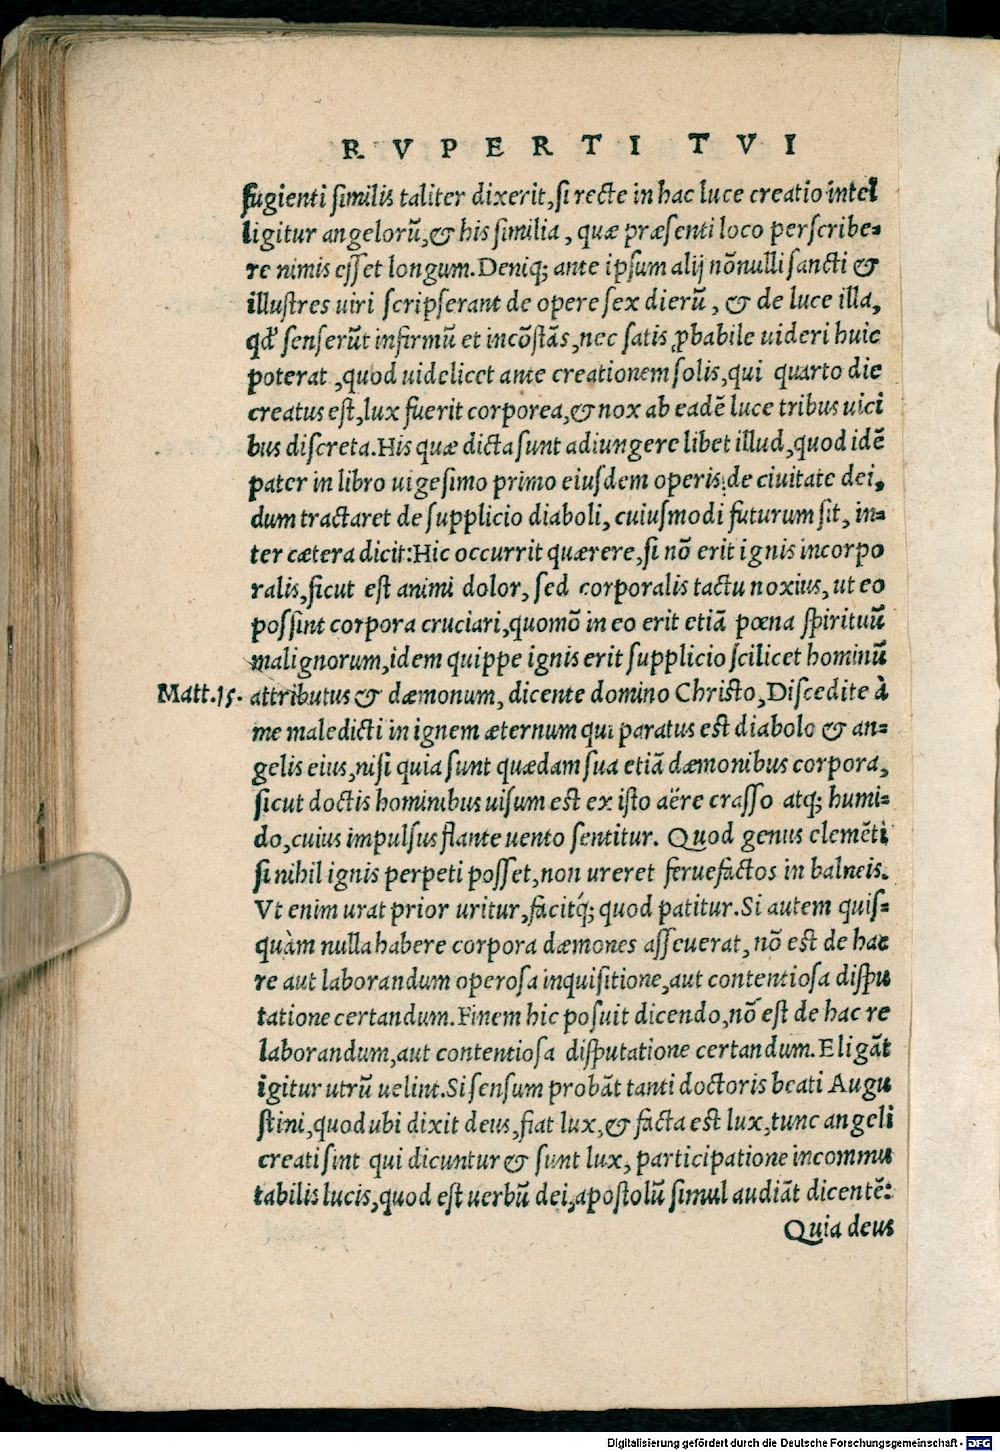 RVPERTI TVI
fugienti similis taliter dixerit, si recte in hac luce creatio intel
ligitur angelorũ, & his similia, quæ præsenti loco perscribe-
re nimis esset longum. Deniq; ante ipsum alij nõnulli sancti &
illustres uiri scripserant de opere sex dierũ, & de luce illa,
qđ senserũt infirmũ et incõstãs, nec satis ꝓbabile uideri huic
poterat, quod uidelicet ante creationem solis, qui quarto die
creatus est, lux fuerit corporea, & nox ab eadẽ luce tribus uici
bus discreta. His quæ dicta sunt adiungere libet illud, quod idẽ
pater in libro uigesimo primo eiusdem operis de ciuitate dei,
dum tractaret de supplicio diaboli, cuiusmodi futurum sit, in-
ter cætera dicit: Hic occurrit quærere, si nõ erit ignis incorpo
ralis, sicut est animi dolor, sed corporalis tactu noxius, ut eo
possint corpora cruciari, quomõ in eo erit etiã pœna spirituũ
malignorum, idem quippe ignis erit supplicio scilicet hominũ
Matt.15. attributus & dæmonum, dicente domino Christo, Discedite à
me maledicti in ignem æternum qui paratus est diabolo & an-
gelis eius, nisi quia sunt quædam sua etiã dæmonibus corpora,
sicut doctis hominibus uisum est ex isto aëre crasso atq; humi-
do, cuius impulsus flante uento sentitur. Quod genus elemẽti
si nihil ignis perpeti posset, non ureret feruefactos in balneis.
Vt enim urat prior uritur, facitq́; quod patitur. Si autem quis-
quàm nulla habere corpora dæmones asseuerat, nõ est de hac
re aut laborandum operosa inquisitione, aut contentiosa dispu
tatione certandum. Finem hic posuit dicendo, nõ est de hac re
laborandum, aut contentiosa disputatione certandum. Eligãt
igitur utrũ uelint. Si sensum probãt tanti doctoris beati Augu
stini, quod ubi dixit deus, fiat lux, & facta est lux, tunc angeli
creati sint qui dicuntur & sunt lux, participatione incommu
tabilis lucis, quod est uerbũ dei, apostolũ simul audiãt dicentẽ:
Quia deus
Digitalisierung gefördert durch die Deutsche Forschungsgemeinschaft - DFG